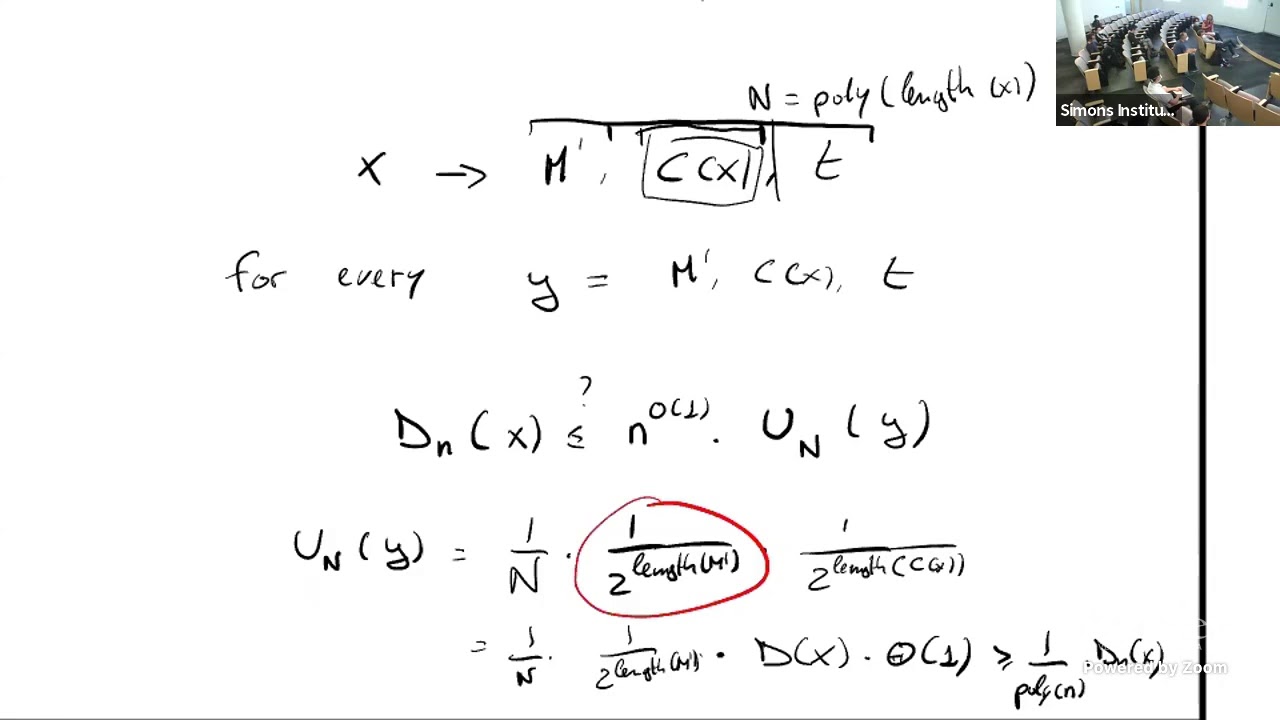 N = poly(length(x))
Simons Institu...
x → M', C(x), t
for every y = M', C(x), t
?
Dₙ(x) ≤ n^O(1) · U_N(y)
U_N(y) = 1/N · 1/2^length(M') · 1/2^length(C(x))
= 1/N · 1/2^length(M') · D(x) · Θ(1) ≥ 1/poly(n) Dₙ(x)
Powered by Zoom